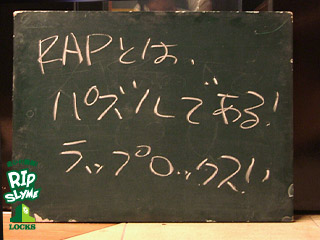 RAPとは、
パズルである!
ラップロックス!!
RIP
SLYME
LOCKS